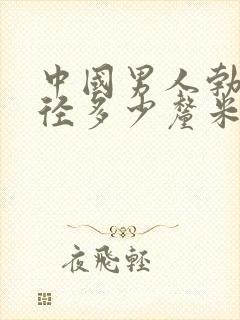 中國男人勃
径多少釐米
夜飛輕